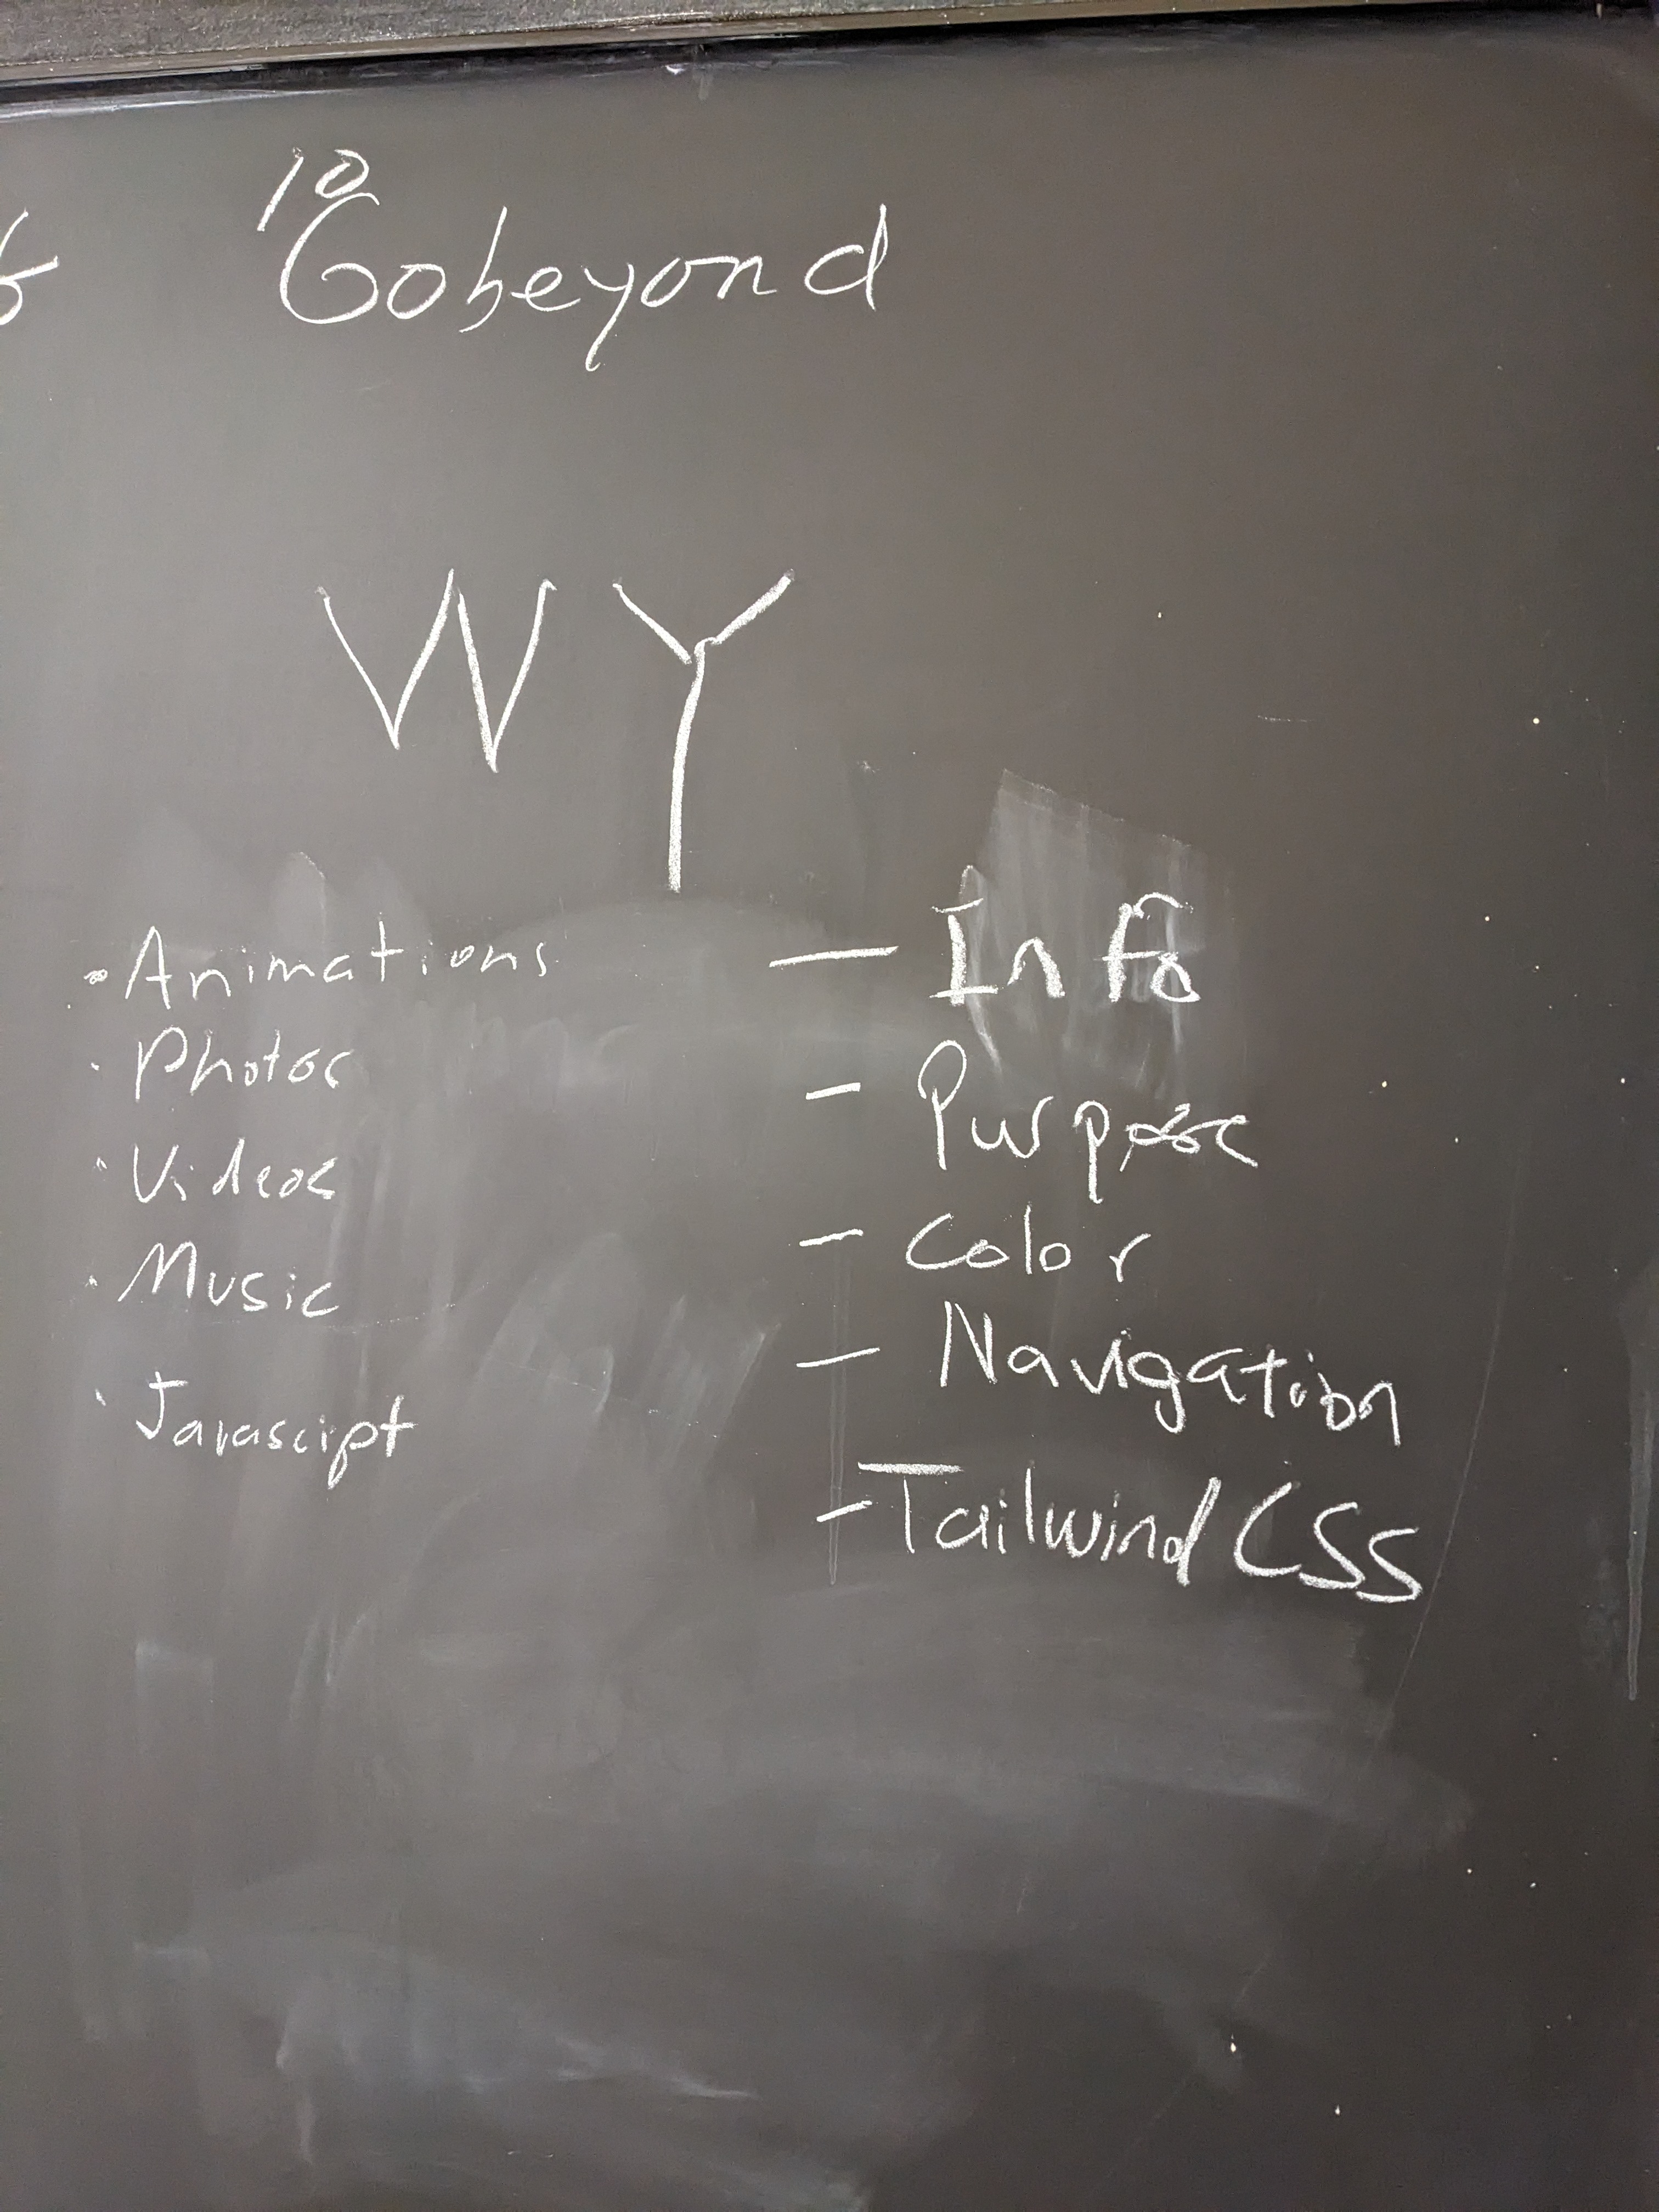 10
Gobeyond
W Y
• Animations
· Photos
· Videos
· Music
· Javascipt
— Info
- Purpose
- Color
- Navigation
- Tailwind CSS